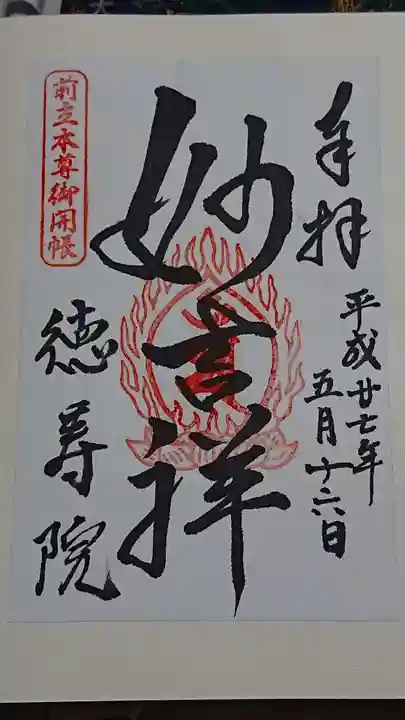 奉拝
平成廿七年
五月十六日
妙吉祥
前立本尊御開帳
徳尊院